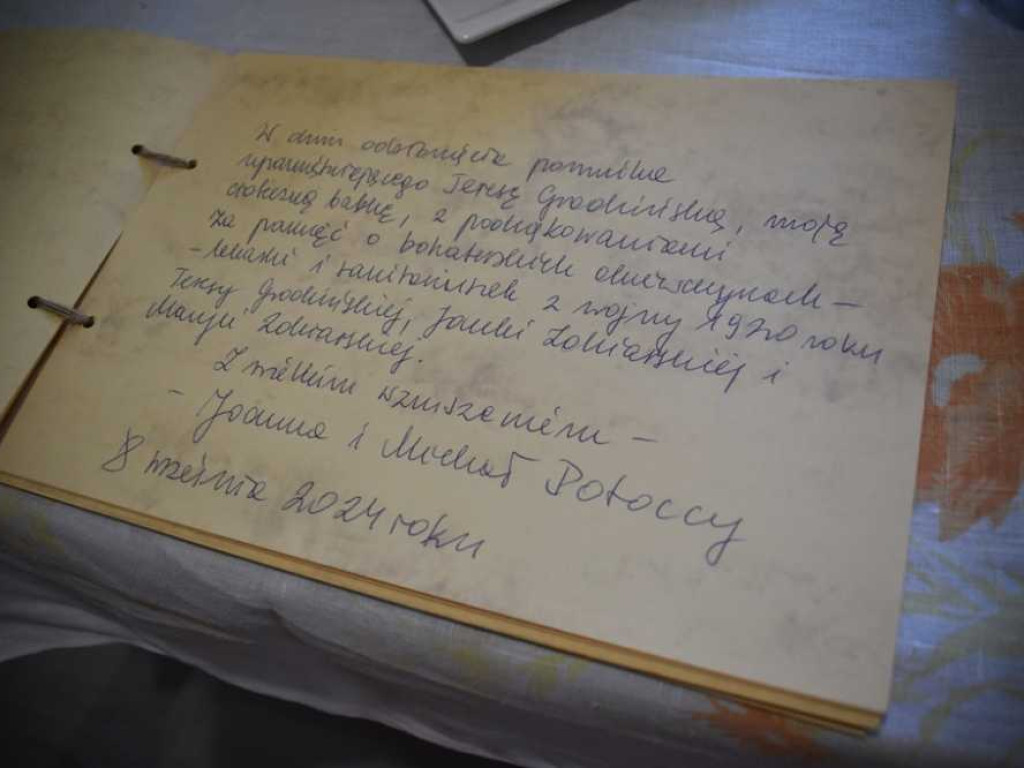 W dniu odsłonięcia pomnika
upamiętniającego Teresę Grodzińską, moją
cioteczną babkę, z podziękowaniami
za pamięć o bohaterskich dziewczynach –
– lekarki i sanitariuszek z wojny 1920 roku
Teresy Grodzińskiej, Janki
Maryli
Z wielkim wzruszeniem –
– Joanna i Michał Potoccy
8 września 2024 roku